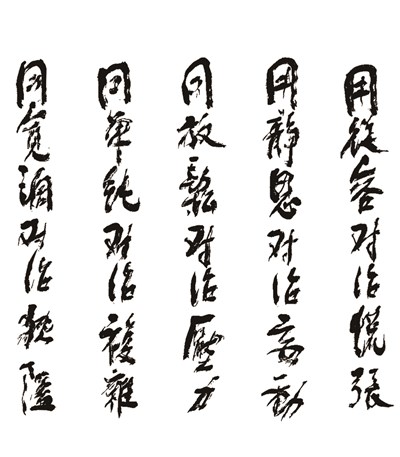 用從容对治慌張
用靜思对治妄動
用放鬆对治壓力
用单純对治複雜
用寬濶对治狹隘